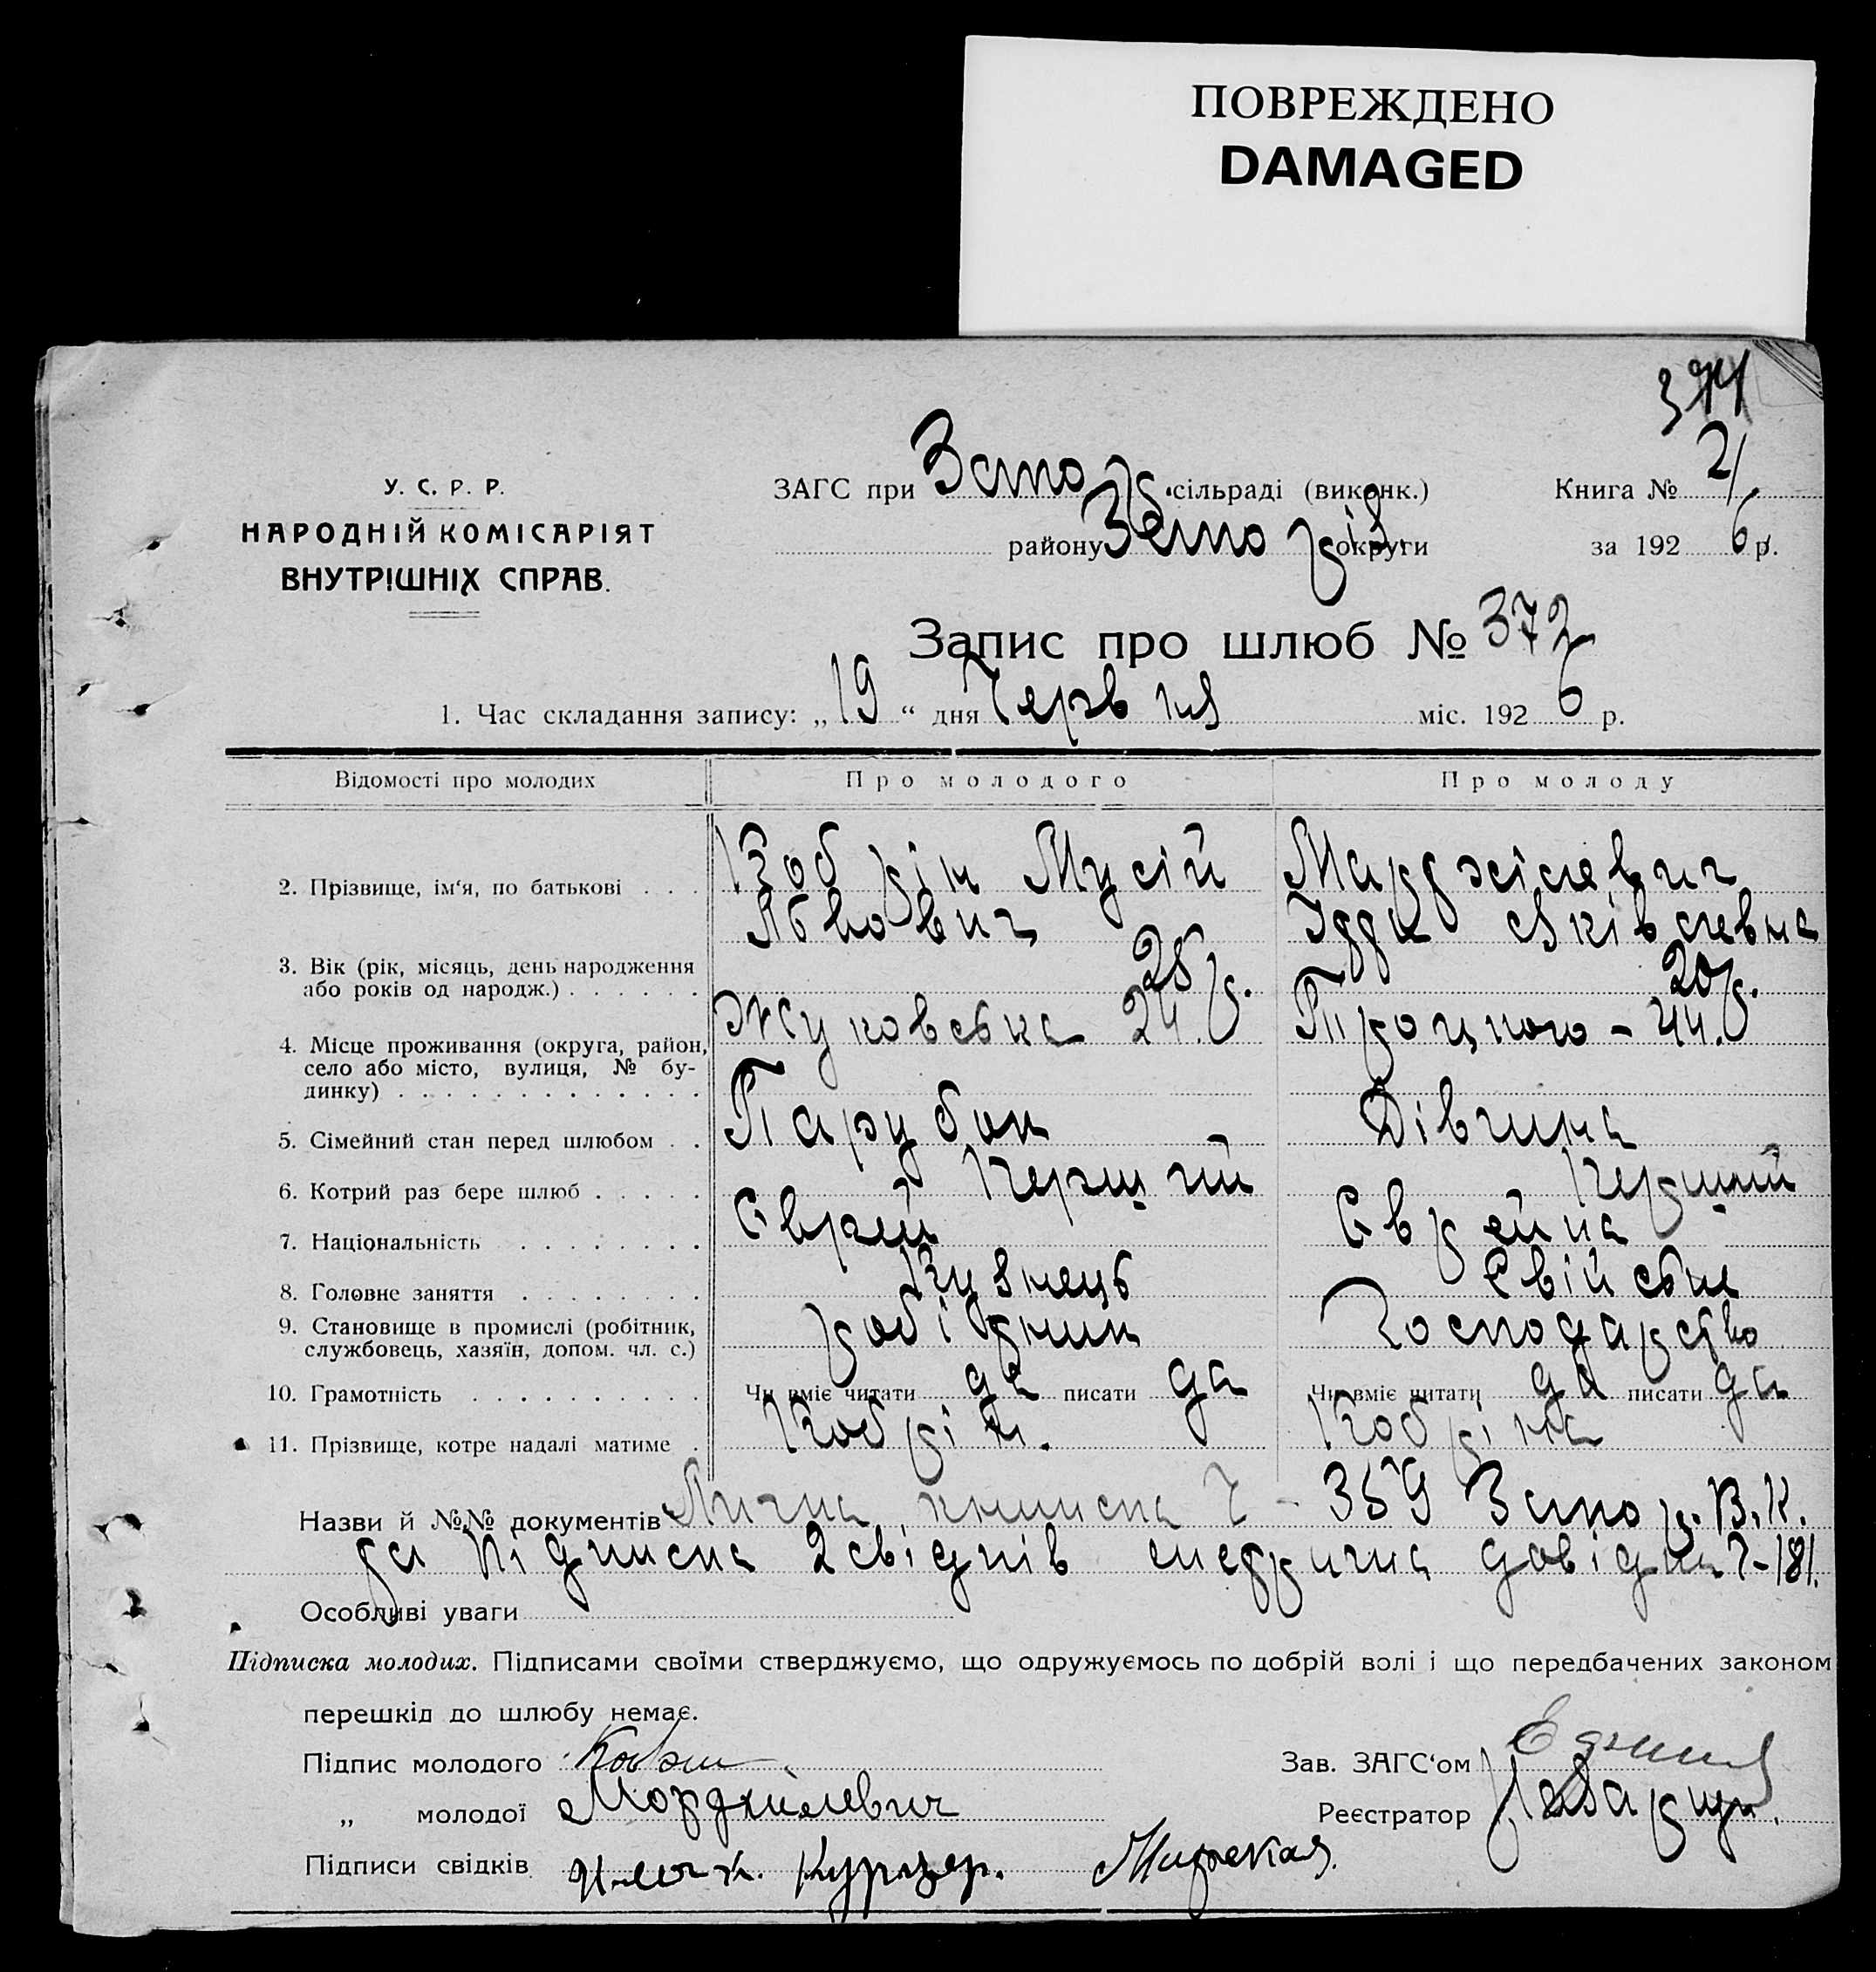 ПОВРЕЖДЕНО
DAMAGED
У. С. Р. Р.
НАРОДНІЙ КОМІСАРІЯТ
ВНУТРІШНІХ СПРАВ.
ЗАГС при Запор. сільраді (виконк.)
району Запоріз. округи
Книга № 2/
за 192 6 р.
Запис про шлюб № 372
1. Час складання запису: „19“ дня Червня міс. 192 6 р.
Відомості про молодих Про молодого Про молоду
2. Прізвище, ім‘я, по батькові . . . Кобрін Мусій Львович Марджілевич Ідда Яківлевна
3. Вік (рік, місяць, день народження або років од народж.) . . . . . . 25 р. 20 р.
4. Місце проживання (округа, район, село або місто, вулиця, № будинку) . . . . . . . . . . . . . Жуковська 24. Троцкого - 44.
5. Сімейний стан перед шлюбом . . Парубок Дівчина
6. Котрий раз бере шлюб . . . . . Перший Перший
7. Національність . . . . . . . . Єврей Єврейка
8. Головне заняття . . . . . . . . Кузнець Свійське
9. Становище в промислі (робітник, службовець, хазяїн, допом. чл. с.) робітник Господарство
10. Грамотність . . . . . . . . . . Чи вміє читати да писати да Чи вміє читати да писати да
11. Прізвище, котре надалі матиме . Кобрін. Кобріна
Назви й №№ документів Лична книжка Ч - 359 Запор. В. К.
да підписка 2 свідків медична довідка Ч-181.
Особливі уваги
Підписка молодих. Підписами своїми стверджуємо, що одружуємось по добрій волі і що передбачених законом
перешкід до шлюбу немає.
Підпис молодого Зав. ЗАГС‘ом
„ молодої Мордхилевич Реєстратор
Підписи свідків Курцер. Мирская.